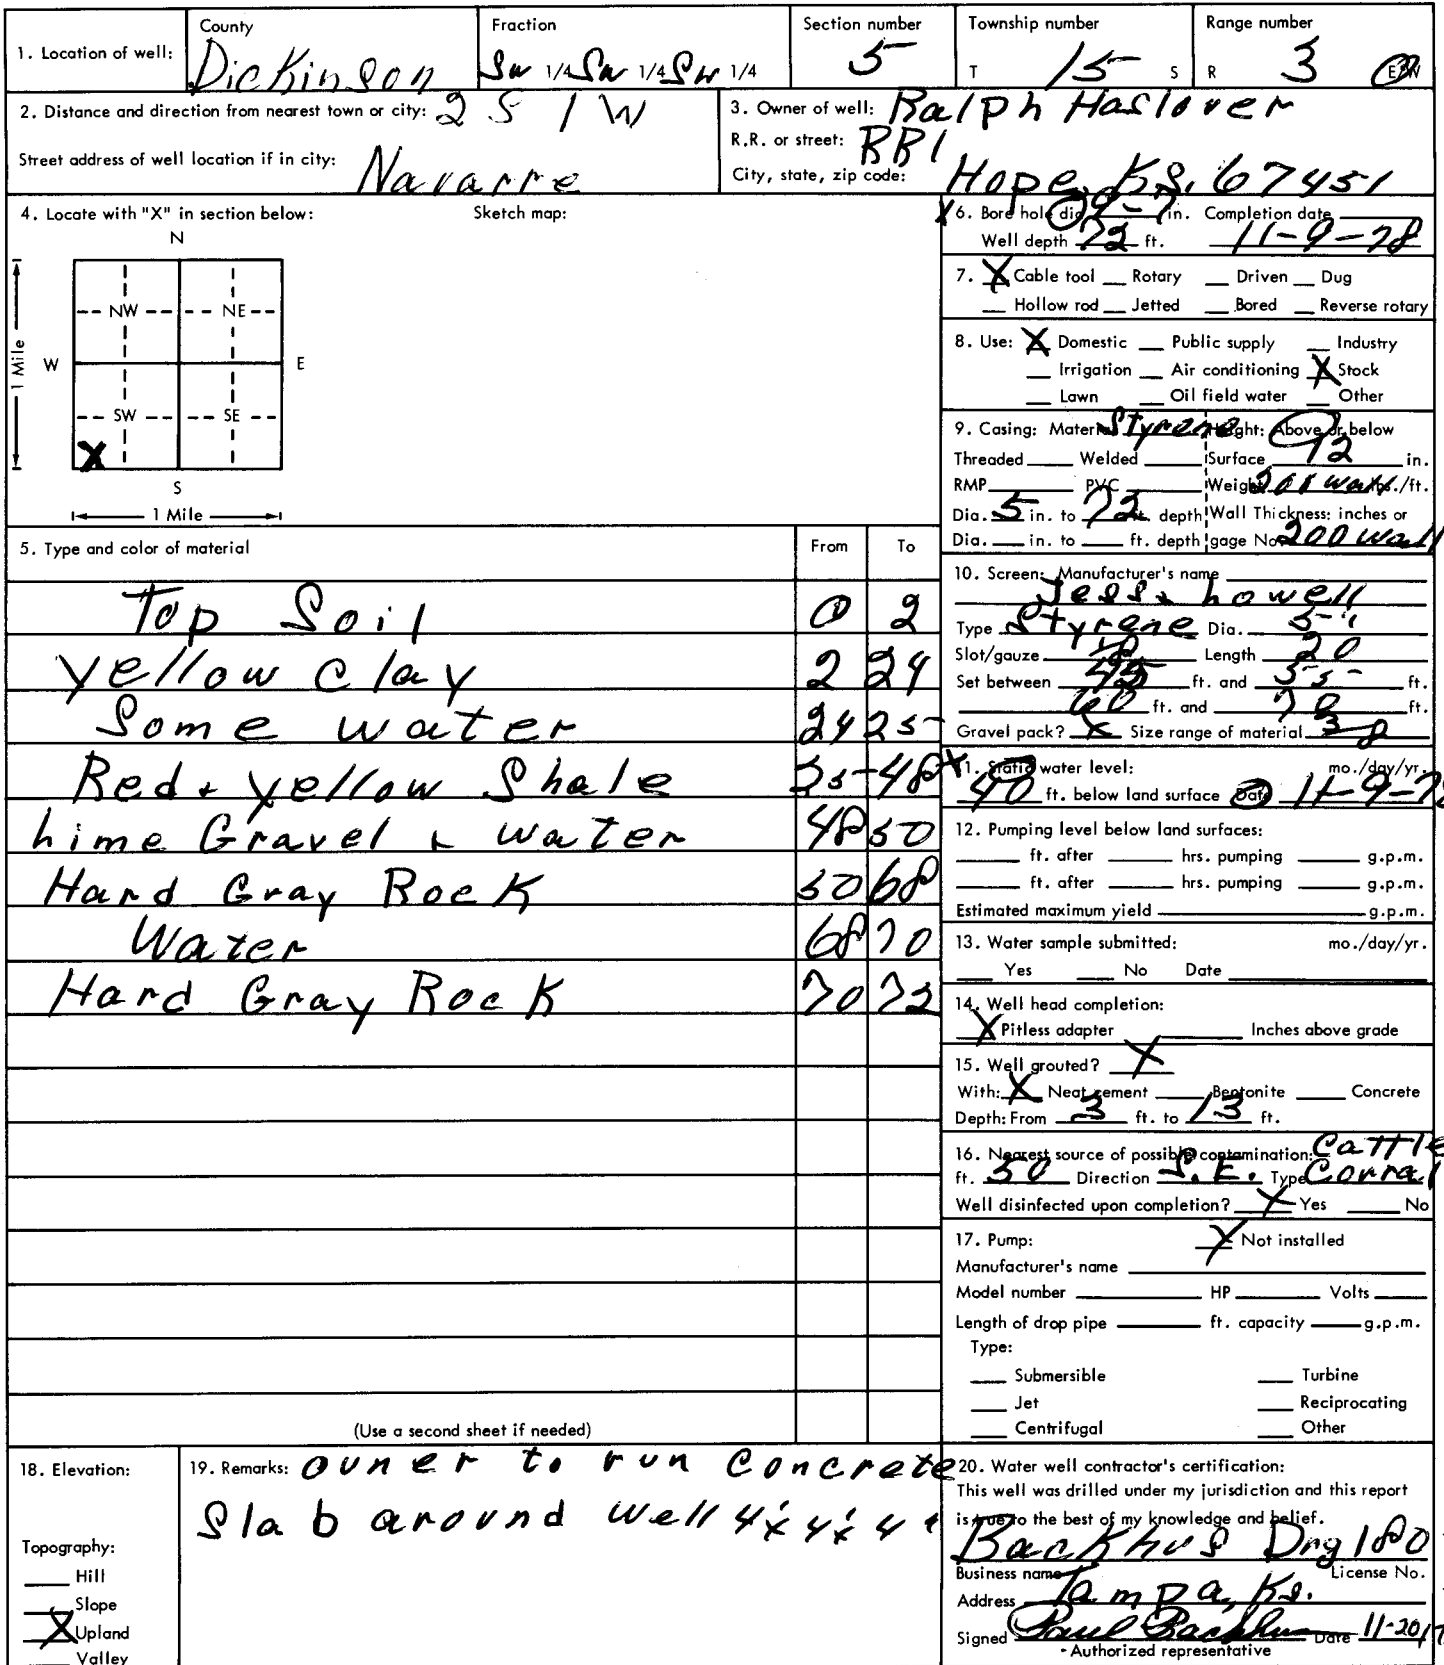 1. Location of well: County Dickinson Fraction SW 1/4 SW 1/4 SW 1/4 Section number 5 Township number T 15 S Range number R 3 E/W
2. Distance and direction from nearest town or city: 2 S 1 W
Street address of well location if in city: Navarre
3. Owner of well: Ralph Haslover
R.R. or street: RR1
City, state, zip code: Hope, Ks. 67451
4. Locate with "X" in section below: Sketch map:
N
NW NE
W E
1 Mile
SW SE
X
S
1 Mile
5. Type and color of material From To
Top Soil 0 2
Yellow Clay 2 24
Some water 24 25
Red + yellow Shale 25 48
Lime Gravel + water 48 50
Hard Gray Rock 50 68
Water 68 70
Hard Gray Rock 70 72
(Use a second sheet if needed)
X 6. Bore hole dia. 9-7 in. Completion date
Well depth 72 ft. 11-9-78
7. X Cable tool Rotary Driven Dug
Hollow rod Jetted Bored Reverse rotary
8. Use: X Domestic Public supply Industry
Irrigation Air conditioning X Stock
Lawn Oil field water Other
9. Casing: Material Styrene Height: Above or below
Threaded Welded Surface 12 in.
RMP PVC Weight 200 wall lbs./ft.
Dia. 5 in. to 72 ft. depth Wall Thickness: inches or
Dia. in. to ft. depth gage No. 200 wall
10. Screen: Manufacturer's name
Jess + howell
Type Styrene Dia. 5"
Slot/gauze Length 20
Set between 45 ft. and 55 ft.
60 ft. and 70 ft.
Gravel pack? X Size range of material 3-8
X 11. Static water level: mo./day/yr.
40 ft. below land surface Date 11-9-78
12. Pumping level below land surfaces:
ft. after hrs. pumping g.p.m.
ft. after hrs. pumping g.p.m.
Estimated maximum yield g.p.m.
13. Water sample submitted: mo./day/yr.
Yes No Date
14. Well head completion:
X Pitless adapter Inches above grade
15. Well grouted? X
With: X Neat cement Bentonite Concrete
Depth: From 3 ft. to 13 ft.
16. Nearest source of possible contamination: Cattle
ft. 50 Direction S.E. Type Corral
Well disinfected upon completion? X Yes No
17. Pump: X Not installed
Manufacturer's name
Model number HP Volts
Length of drop pipe ft. capacity g.p.m.
Type:
Submersible Turbine
Jet Reciprocating
Centrifugal Other
18. Elevation:
Topography:
Hill
Slope
X Upland
Valley
19. Remarks: owner to run Concrete
Slab around well 4'x4'x4"
20. Water well contractor's certification:
This well was drilled under my jurisdiction and this report
is true to the best of my knowledge and belief.
Backhus Drg 180
Business name License No.
Address Tampa, Ks.
Signed Paul Backhus Date 11-20/7
- Authorized representative